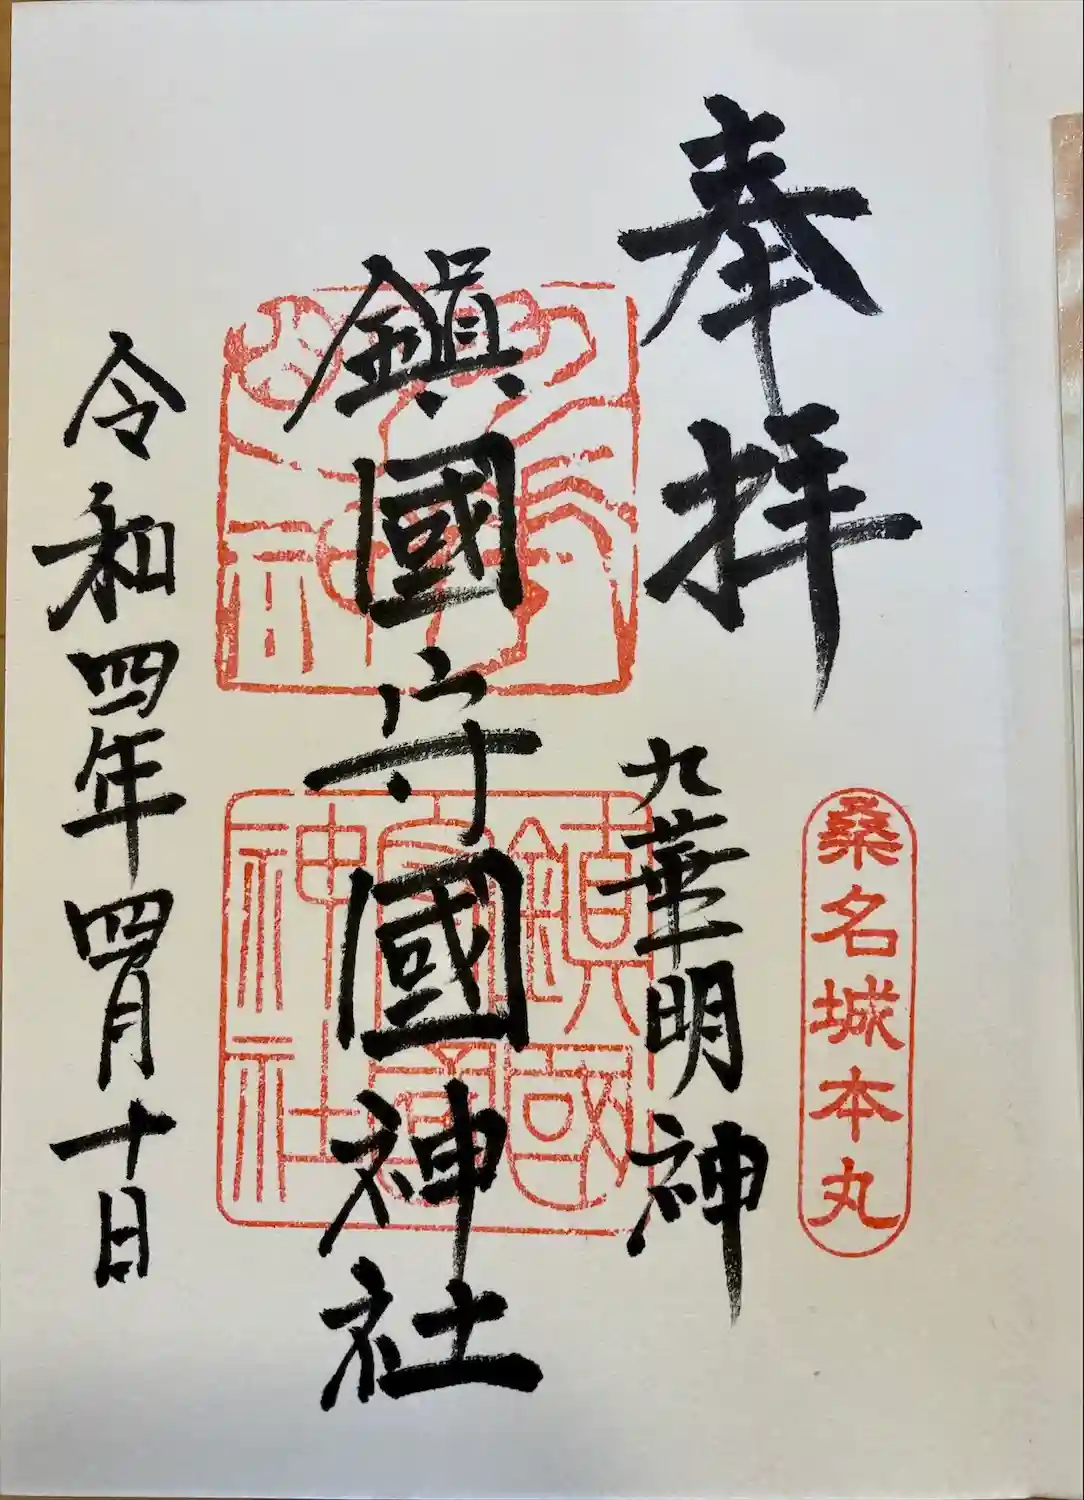 奉拝
桑名城本丸
九華明神
鎮國守國神社
鎮國守國神社
令和四年四月十日